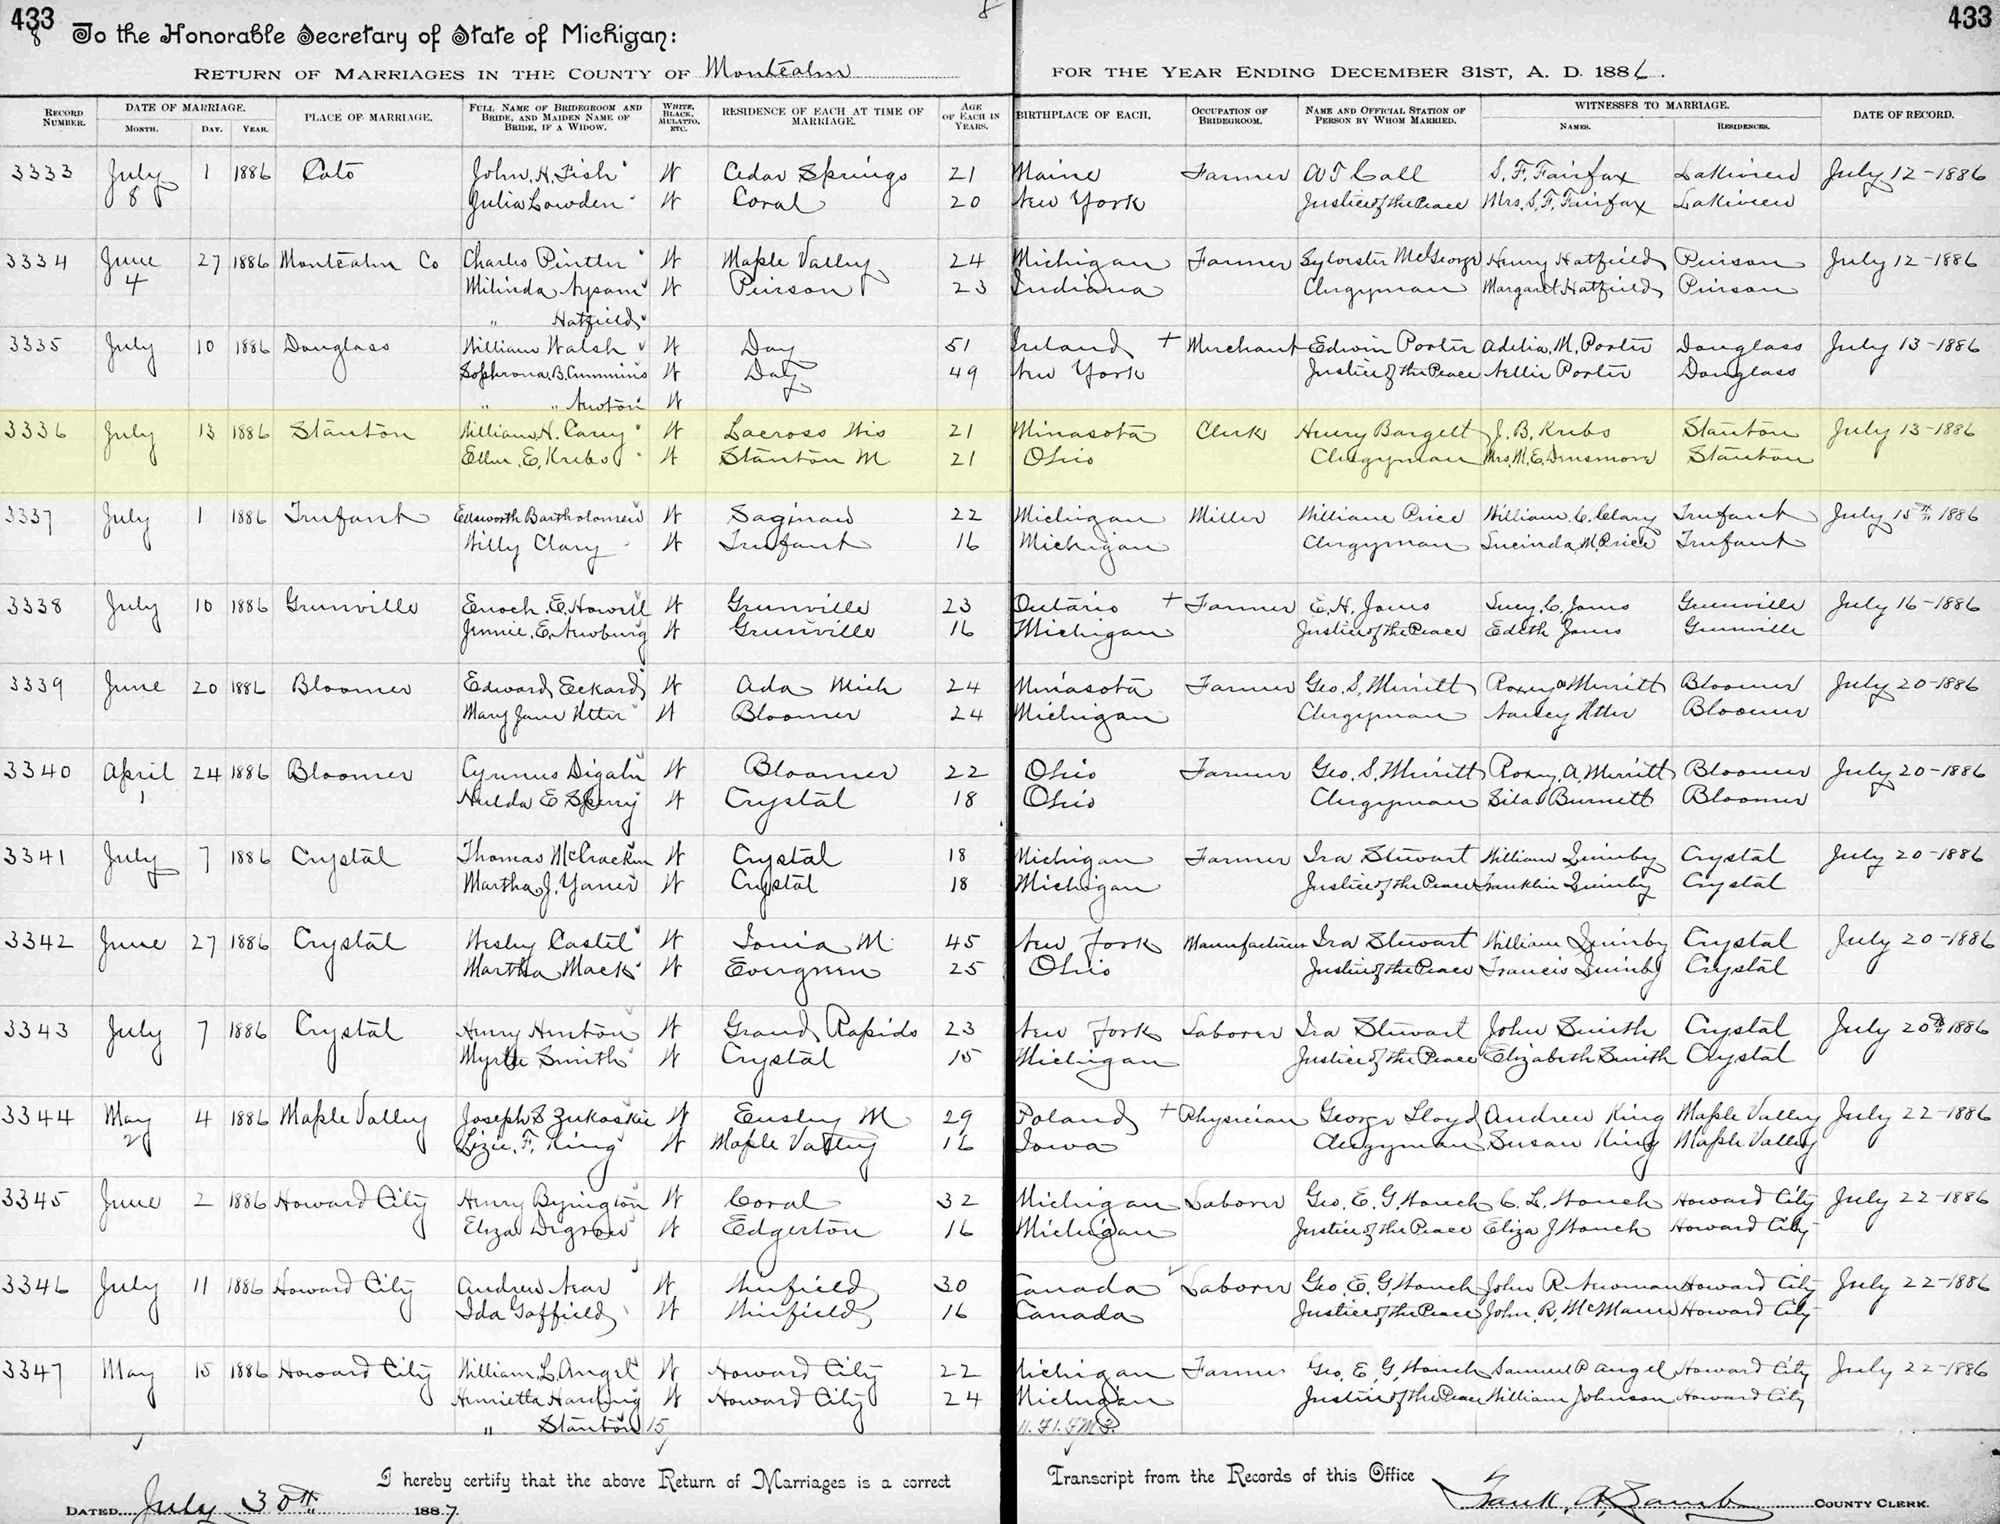 433 8 433
To the Honorable Secretary of State of Michigan:
Return of Marriages in the County of Montcalm for the Year Ending December 31st, A. D. 1886.
Record Number. Date of Marriage. Month. Day. Year. Place of Marriage. Full Name of Bridegroom and Bride, and Maiden Name of Bride, if a Widow. White, Black, Mulatto, Etc. Residence of Each at Time of Marriage. Age of Each in Years. Birthplace of Each. Occupation of Bridegroom. Name and Official Station of Person by Whom Married. Witnesses to Marriage. Names. Residences. Date of Record.
3333 July 1 1886 Cato John. H. Fish W Cedar Springs 21 Maine Farmer A T Call S. F. Fairfax Lakeview July 12-1886
8 Julia Lowden W Coral 20 New York Justice of the Peace Mrs. S. F. Fairfax Lakeview
3334 June 27 1886 Montcalm Co Charles W Maple Valley 24 Michigan Farmer Sylvester McGeorge Henry Hatfield Pierson July 12-1886
4 Milinda W Pierson 23 Indiana Clergyman Margaret Hatfield Pierson
" Hatfield
3335 July 10 1886 Douglass William Walsh W Day 51 Ireland + Merchant Edwin Porter Adelia. M. Porter Douglass July 13-1886
Sophrona. B. Cummins W Day 49 New York Justice of the Peace Nellie Porter Douglass
" " Newton W
3336 July 13 1886 Stanton William. H. Carey W Lacross Wis 21 Minasota Clerk Henry Bargelt J. B. Krebs Stanton July 13-1886
Ellen. E. Krebs W Stanton M 21 Ohio Clergyman Mrs. M. E. Densmore Stanton
3337 July 1 1886 Trufant Edsworth Bartholomew W Saginaw 22 Michigan Miller William Price William. C. Clary Trufant July 15th 1886
Willy Clary W Trufant 16 Michigan Clergyman Lucinda M. Price Trufant
3338 July 10 1886 Greenville Enoch. E. Howell W Greenville 23 Ontario + Farmer E. H. Jones Lucy. C. Jones Greenville July 16-1886
Jennie. E. Newburg W Greenville 16 Michigan Justice of the Peace Edith Jones Greenville
3339 June 20 1886 Bloomer Edward Eckard W Ada Mich 24 Minasota Farmer Geo. S. Merritt Roxey a Merritt Bloomer July 20-1886
Mary Jane Utter W Bloomer 24 Michigan Clergyman Utter Bloomer
3340 April 24 1886 Bloomer Cyrenus W Bloomer 22 Ohio Farmer Geo. S. Merritt Roxey. A. Merritt Bloomer July 20-1886
1 Hulda E Sperry W Crystal 18 Ohio Clergyman Silas Burnett Bloomer
3341 July 7 1886 Crystal Thomas McCracken W Crystal 18 Michigan Farmer Ira Stewart William Quimby Crystal July 20-1886
Martha. J. W Crystal 18 Michigan Justice of the Peace Franklin Quimby Crystal
3342 June 27 1886 Crystal Wesley Castel W Ionia M 45 New York Manufacturer Ira Stewart William Quimby Crystal July 20-1886
Martha Mack W Evergreen 25 Ohio Justice of the Peace Francis Quimby Crystal
3343 July 7 1886 Crystal Henry W Grand Rapids 23 New York Laborer Ira Stewart John Smith Crystal July 20th 1886
Myrtle Smith W Crystal 15 Michigan Justice of the Peace Elizabeth Smith Crystal
3344 May 4 1886 Maple Valley Joseph S Zukoskie W Ensley M 29 Poland + Physician George Lloyd Andrew King Maple Valley July 22-1886
2 Lizie. F. King W Maple Valley 16 Iowa Clergyman Susan King Maple Valley
3345 June 2 1886 Howard City Henry Byington W Coral 32 Michigan Laborer Geo. E. G. Houck C. L. Houck Howard City July 22-1886
Eliza Degrow W Edgerton 16 Michigan Justice of the Peace Eliza J Houck Howard City
3346 July 11 1886 Howard City Andrew Near W Winfield 30 Canada Laborer Geo. E. G. Houck John R Newman Howard City July 22-1886
Ida Gaffield W Winfield 16 Canada Justice of the Peace John. R. McMann Howard City
3347 May 15 1886 Howard City William. L. Angel W Howard City 22 Michigan Farmer Geo. E. G. Houck Samuel P Angel Howard City July 22-1886
Henrietta Harding W Howard City 24 Michigan Justice of the Peace William Johnson Howard City
" Stanton 15
I hereby certify that the above Return of Marriages is a correct Transcript from the Records of this Office
Dated July 30th 1887. Frank. A. Lamb County Clerk.